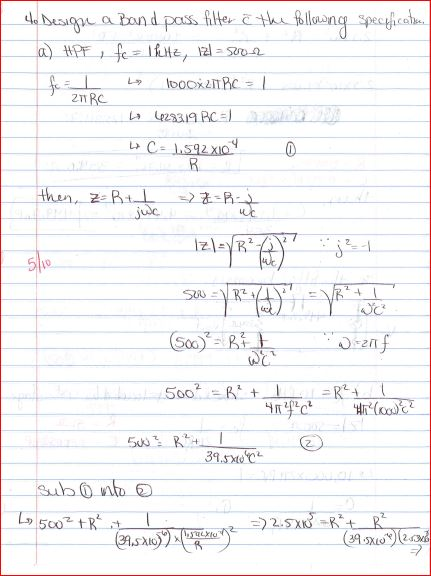 4. Design a Band pass filter c̄ the following specification.
a) HPF, fc = 1kHz, |Z| = 500Ω
fc = 1/2πRC ↳ 1000×2πRC = 1
↳ 628319RC = 1
↳ C = 1.592×10⁻⁴/R ①
then, Z = R + 1/jωc => Z = R - j/ωc
|Z| = √(R² - (j/ωc)²) ∵ j² = -1
5/10
500 = √(R² + (1/ωc)²) = √(R² + 1/ω²c²)
(500)² = R² + 1/ω²c² ∵ ω = 2πf
500² = R² + 1/4π²f²c² = R² + 1/4π²(1000)²c²
500² = R² + 1/39.5×10⁶C² ②
sub ① into ②
↳ 500² + R² + 1/(39.5×10⁶)×(1.592×10⁻⁴/R)² => 2.5×10⁵ = R² + R²/(39.5×10⁻⁶)(2.53×10⁻⁸
=>